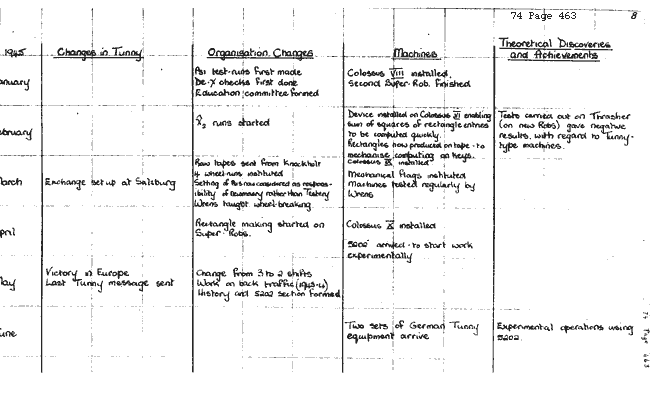 74 Page 463
8
1945
Changes in Tunny
Organisation Changes
Machines
Theoretical Discoveries
and Achievements
anuary
Psi test-runs first made
De-X checks first done
Education committee formed
Colossus VIII installed.
Second Super-Rob. finished
ebruary
X̂₂ runs started
Device installed on Colossus VI enabling
sum of squares of rectangle entries
to be computed quickly.
Rectangles now produced on tape - to
mechanise computing on keys.
Tests carried out on Thrasher
(on new Robs) gave negative
results, with regard to Tunny-
type machines.
arch
Exchange set up at Salzburg
Raw tapes sent from Knockholt
4 wheel-runs instituted
Setting of Psis now considered as respons-
ibility of rather than Testery
Wrens taught wheel-breaking.
Colossus IX installed
Mechanical Flags instituted
Machines tested regularly by
Wrens
pril
Rectangle making started on
Super-Robs.
Colossus X installed
5202 arrived - to start work
experimentally
ay
Victory in Europe
Last Tunny message sent
Change from 3 to 2 shifts
Work on back traffic (1943-4)
History and 5202 section formed
une
Two sets of German Tunny
equipment arrive
Experimental operations using
5202.
74 Page 463